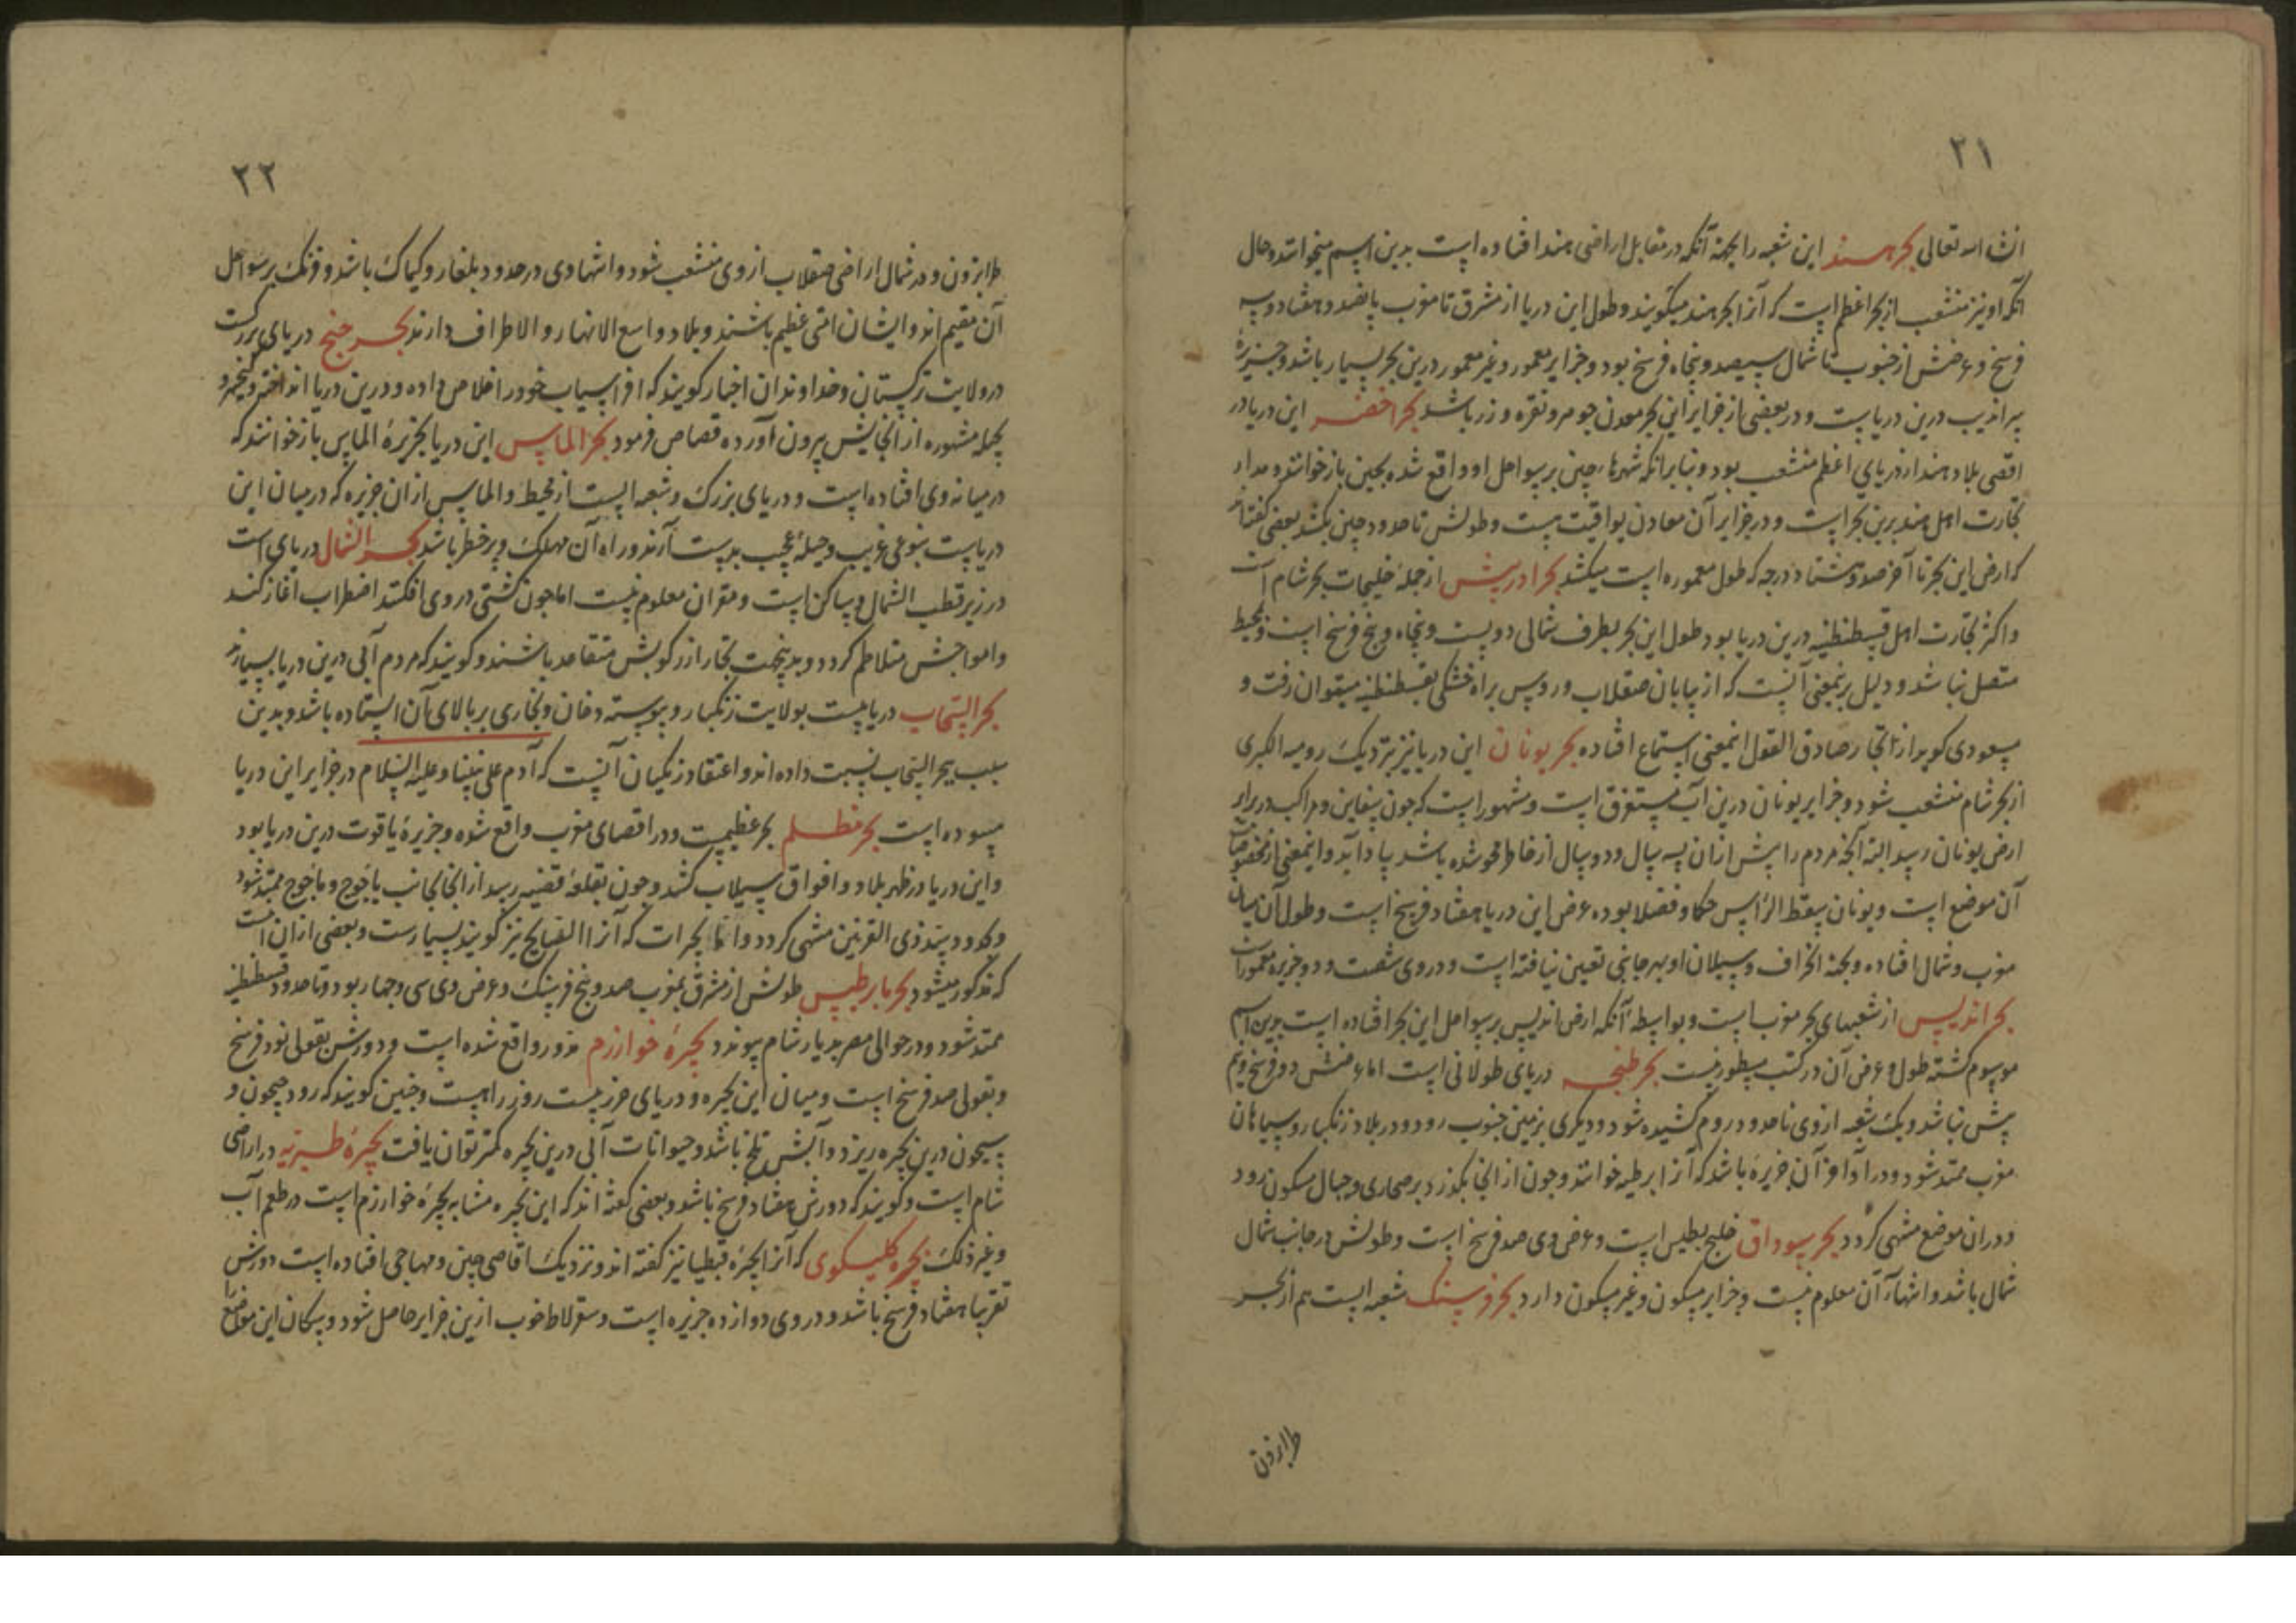 ۲۱
ان شاء الله تعالی بحر هند این شعبه را بجهة آنکه در مقابل اراضی هند افتاده است بدین اسم میخوانند و حال
آنکه او نیز منشعب از بحر اعظم است که آنرا بحر هند میگویند و طول این دریا از مشرق تا مغرب پانصد و هفتاد و سه
فرسخ و عرضش از جنوب تا شمال سیصد و پنجاه فرسخ بود و جزایر معمور و غیر معمور درین بحر بسیار باشد و جزیرۀ
سراندیب درین دریاست و در بعضی از جزایر این بحر معدن جوهر و نقره و زر باشد بحر اخضر این دریا در
اقصی بلاد هند از دریای اعظم منشعب بود و بنابر آنکه شهرهاء چین بر سواحل او واقع شده بچین باز خوانند و مدار
تجارت اهل هند برین بحر است و در جزایر آن معادن یواقیت هست و طولش تا حدود چین بکشد بعضی گفته‌اند
که ارض این بحر تا آخر صد و هشتاد درجه که طول معموره است میکشد بحر ادریس از جملۀ خلیجات بحر شام است
و اکثر تجارت اهل قسطنطنیه درین دریا بود طول این بحر بطرف شمالی دویست و پنجاه و پنج فرسخ است و بمحیط
متصل نباشد و دلیل برینمعنی آنست که از بیابان صقلاب و روس براه خشکی بقسطنطنیه میتوان رفت و
مسعودی گوید از تجار صادق القول اینمعنی استماع افتاده بحر یونان این دریا نیز نزدیک رومیه الکبری
از بحر شام منشعب شود و جزایر یونان درین آب مستغرق است و مشهور است که چون سفاین و مراکب در برابر
ارض یونان رسد البته آنچه مردم را پیش ازان بسه سال و دو سال از خاطر محو شده باشد بیاد آید و اینمعنی از مخصوصات
آن موضع است و یونان مسقط الرأس حکما و فضلا بوده عرض این دریا هفتاد فرسخ است و طول آن میان
مغرب و شمال افتاده و بجهة انحراف و سیلان او بهر جانبی تعیین نیافته است و در وی شصت و دو جزیره معمور است
بحر اندلس از شعبهای بحر مغرب است و بواسطۀ آنکه ارض اندلس بر سواحل این بحر افتاده است بدین اسم
موسوم گشته طول و عرض آن در کتب مسطور نیست بحر طنجه دریای طولانی است اما عرضش دو فرسخ و نیم
بیش نباشد و یک شعبه از وی تا حدود روم کشیده شود و دیگری بزمین جنوب رود و در بلاد زنگبار و سپاهان
مغرب ممتد شود و در آواخر آن جزیرۀ باشد که آنرا برطیه خوانند و چون از انجا بگذرد بر صحاری و جبال مسکون رود
و دران موضع منتهی گردد بحر سوداق خلیج بطیس است و عرض وی صد فرسخ است و طولش در جانب شمال
شمال باشد و انتهاء آن معلوم نیست و جزایر مسکون و غیر مسکون دارد بحر فرسنک شعبه ایست هم از بحر
طرابزون
۲۲
طرابزون و در شمال اراضی صقلاب از وی منشعب شود و انتهاء وی در حدود بلغار و کیماک باشد و فرنک بر سواحل
آن مقیم‌اند و ایشان امتی عظیم باشند و بلاد واسع الانهار و الاطراف دارند بحر جنج دریای بزرگست
در ولایت ترکستان و خداوندان اخبار گویند که افراسیاب خود را خلاص داده و درین دریا انداخته و کیخسرو
بحیلۀ مشهوره از انجایش بیرون آورده قصاص فرمود بحر الماس این دریا بجزیرۀ الماس باز خوانند که
در میانۀ وی افتاده است و دریای بزرگ و شعبه ایست از محیط و الماس ازان جزیره که در میان این
دریاست بنوعی غریب و حیلۀ عجیب بدست آرند و راه آن مهلک و پر خطر باشد بحر الشمال دریای است
در زیر قطب الشمال و ساکن است و مقر آن معلوم نیست اما چون کشتی در وی افکنند اضطراب آغاز کند
و امواجش متلاطم گردد و بدینجهت تجار از رکوبش متقاعد باشند و گویند که مردم آبی درین دریا بسیارند
بحر السحاب دریاییست بولایت زنگبار و پیوسته دخان و بخاری بر بالای آن ایستاده باشد و بدین
سبب ببحر السحاب نسبت داده‌اند و اعتقاد زنگیان آنست که آدم علی نبینا و علیه السلام در جزایر این دریا
میبوده است بحر مظلم بحر عظیمیست و در اقصای مغرب واقع شده و جزیرۀ یاقوت درین دریا بود
و این دریا در ظهر بلاد واقواق سیلاب کشد و چون بقلعۀ فضیه رسد از انجا بجانب یأجوج و مأجوج ممتد شود
و بحدود سد ذی القرنین منتهی گردد و اما بحیرات که آنرا الفبایح نیز گویند بسیارست و بعضی ازان اینست
که مذکور میشود بحر مابرطیس طولش از مشرق بمغرب صد و پنج فرسنک و عرض وی سی و چهار بود و تا حدود قسطنطنیه
ممتد شود و در حوالی مصر بدیار شام پیوندد بحیرۀ خوارزم مدور واقع شده است و دورش بقولی نود فرسخ
و بقولی صد فرسخ است و میان این بحیره و دریای خزر بیست روزه راهست و چنین گویند که رود جیحون و
سیحون درین بحیره ریزد و آبش تلخ باشد و حیوانات آبی درین بحیره کمتر توان یافت بحیرۀ طبریه در اراضی
شام است و گویند که دورش هفتاد فرسخ باشد و بعضی گفته اند که این بحیره مشابه بحیرۀ خوارزم است در طعم آب
و غیر ذلک بحیره کلیسکوی که آنرا بحیرۀ قبطیا نیز گفته اند و نزدیک اقاصی چین و مهاجی افتاده است دورش
تقریبا هفتاد فرسخ باشد و در وی دوازده جزیره است و سقرلاط خوب ازین جزایر حاصل شود و سکان این مواضع